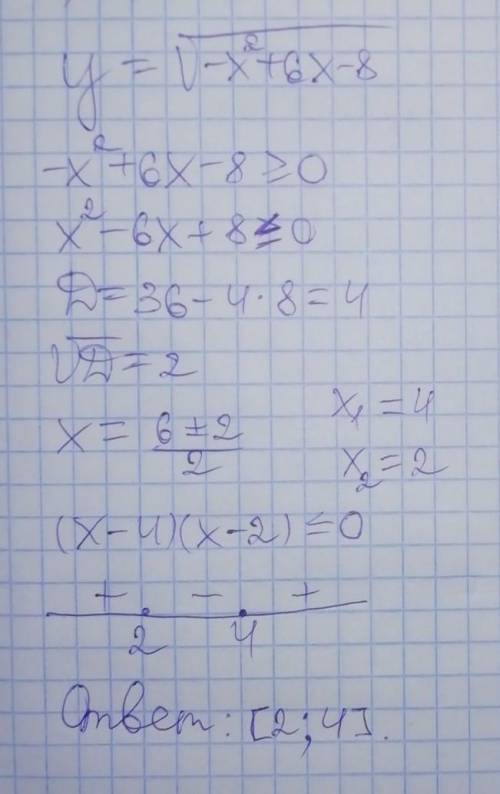 y = √-x²+6x-8
-x²+6x-8≥0
x²-6x+8≤0
D=36-4·8=4
√D=2
x= (6±2)/2
x₁=4
x₂=2
(x-4)(x-2)≤0
+ - +
2 4
Ответ: [2;4].